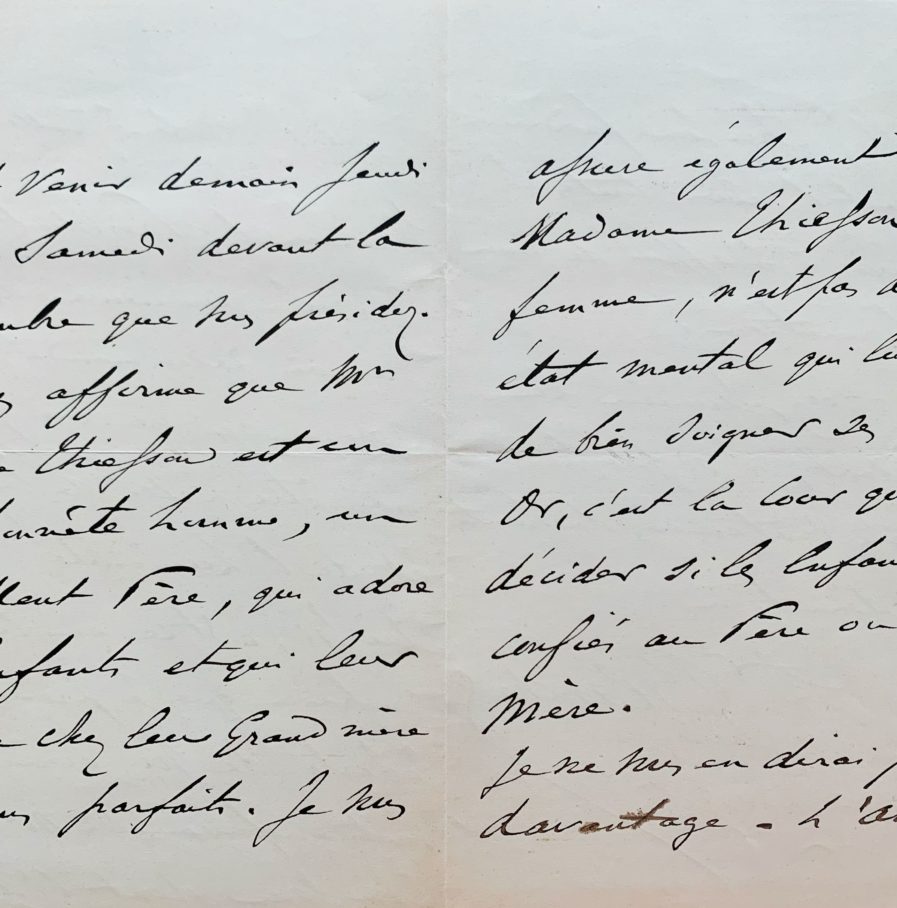 venir demain Jeudi
Samedi devant la
que vous présidez.
affirme que Mr
Thiesson est un
honnête homme, un
Père, qui adore
Enfants et qui leur
chez leur Grand mère
parfaits. Je vous
assure également
Madame Thiesson
femme, n'est pas
état mental qui
de bien soigner ses
Or, c'est la Cour
décider si les Enfan
confiés au Père ou
Mère.
Je ne vous en dirai
davantage - L'